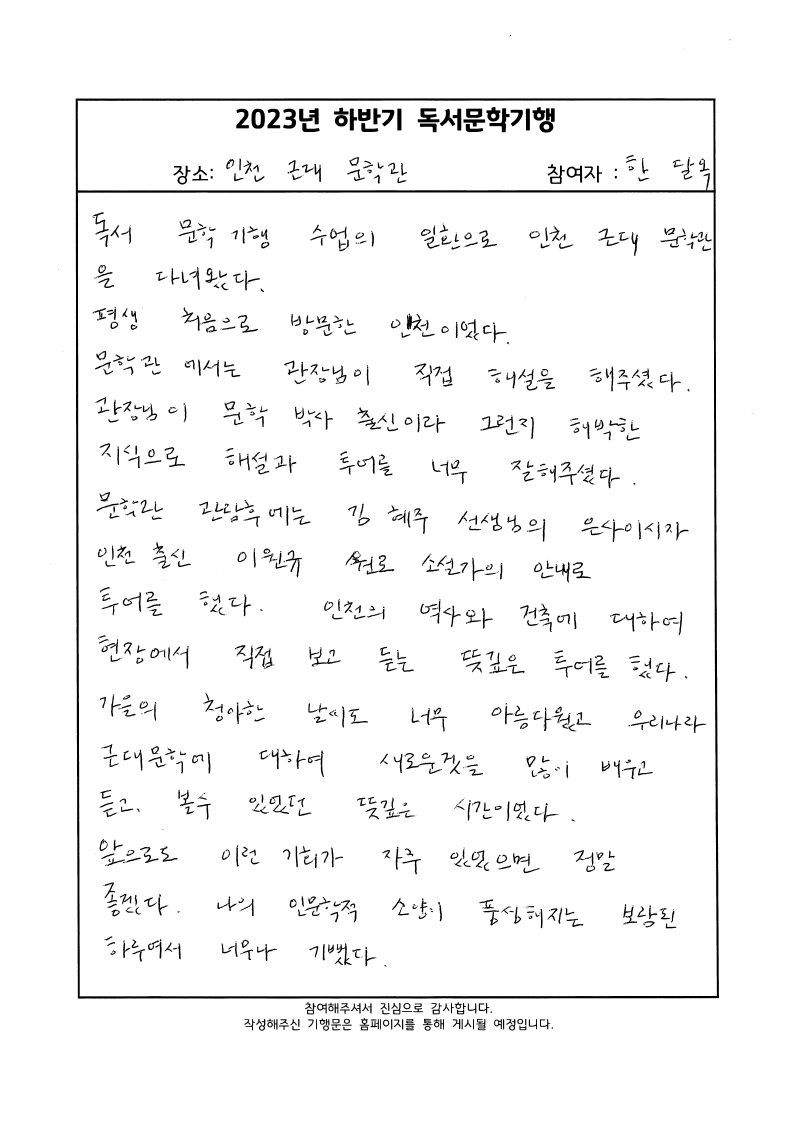 2023년 하반기 독서문학기행
장소: 인천 근대 문학관 참여자 : 한 달옥
독서 문학기행 수업의 일환으로 인천 근대 문학관
을 다녀왔다.
평생 처음으로 방문한 인천이었다.
문학관 에서는 관장님이 직접 해설을 해주셨다.
관장님이 문학 박사 출신이라 그런지 해박한
지식으로 해설과 투어를 너무 잘해주셨다.
문학관 관람후에는 김 혜주 선생님의 은사이시자
인천 출신 이원규 원로 소설가의 안내로
투어를 했다. 인천의 역사와 건축에 대하여
현장에서 직접 보고 듣는 뜻깊은 투어를 했다.
가을의 청아한 날씨도 너무 아름다웠고 우리나라
근대문학에 대하여 새로운것을 많이 배우고
듣고, 볼수 있었던 뜻깊은 시간이었다.
앞으로도 이런 기회가 자주 있었으면 정말
좋겠다. 나의 인문학적 소양이 풍성해지는 보람된
하루여서 너무나 기뻤다.
참여해주셔서 진심으로 감사합니다.
작성해주신 기행문은 홈페이지를 통해 게시될 예정입니다.